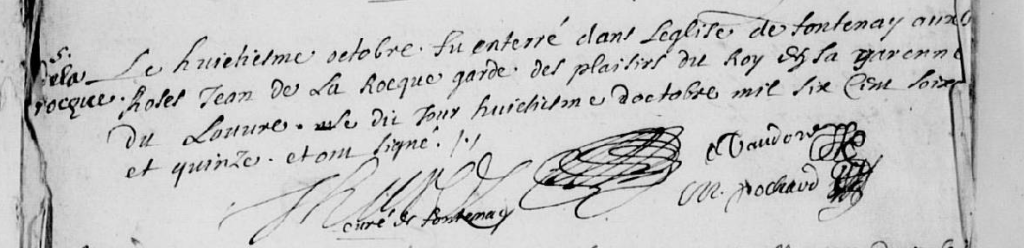 S.
dela
rocque.
Le huictiesme octobre. fu enterré dans Leglise de fontenay aux
Roses Jean de La Rocque garde. des plaisirs du Roy en sa garenne
du Louure. le dit Jour huictiesme doctobre mil six Cent soix
et quinze. et ont signé.
curé de fontenay